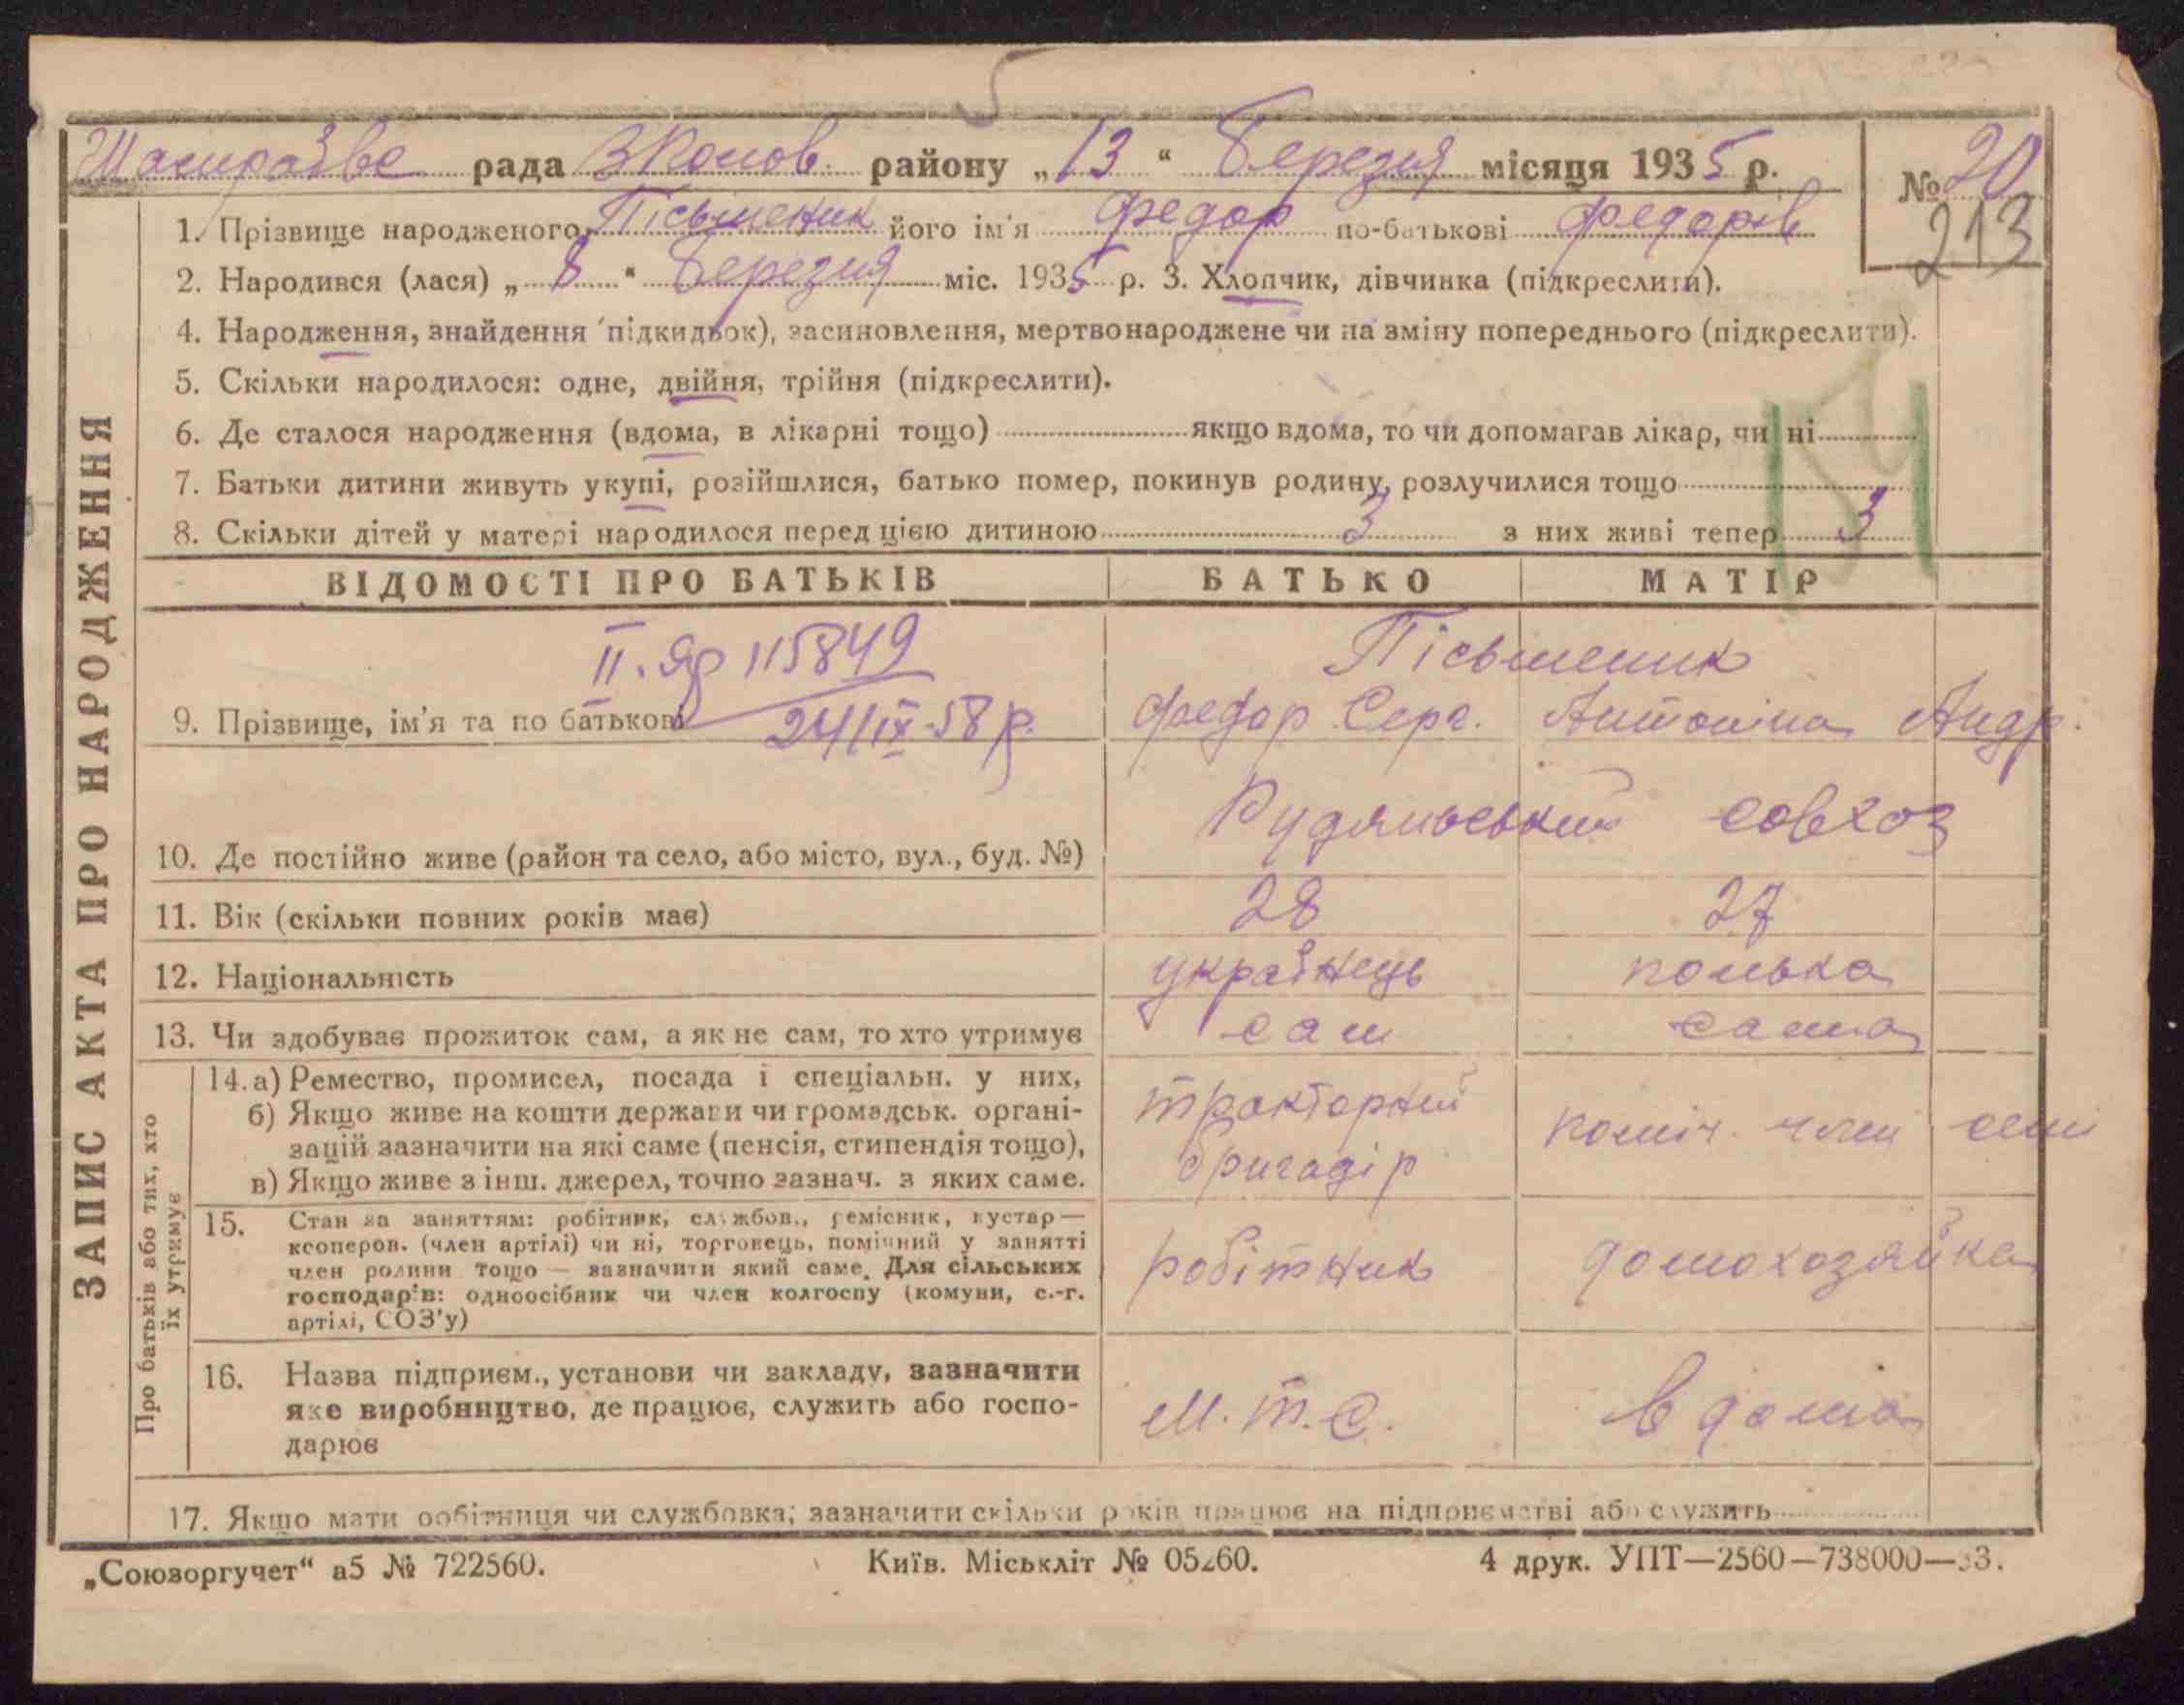 рада району „13“ Березня місяця 1935 р. № 20
213
1. Прізвище народженого Пісьменик його ім'я Федор по-батькові Федорів
2. Народився (лася) „8“ Березня міс. 1935 р. 3. Хлопчик, дівчинка (підкреслити).
4. Народження, знайдення (підкидьок), засиновлення, мертвонароджене чи на зміну попереднього (підкреслити).
5. Скільки народилося: одне, двійня, трійня (підкреслити).
6. Де сталося народження (вдома, в лікарні тощо) якщо вдома, то чи допомагав лікар, чи ні
7. Батьки дитини живуть укупі, розійшлися, батько помер, покинув родину, розлучилися тощо
8. Скільки дітей у матері народилося перед цією дитиною 3 з них живі тепер 3
ВІДОМОСТІ ПРО БАТЬКІВ БАТЬКО МАТІР
II. ЯР 115849 Пісьменик
9. Прізвище, ім'я та по батькові 24/IX-58 р. Федор Серг. Антоніна Андр.
совхоз
10. Де постійно живе (район та село, або місто, вул., буд. №)
11. Вік (скільки повних років має) 28 27
12. Національність українець полька
13. Чи здобуває прожиток сам, а як не сам, то хто утримує сам сама
14. а) Ремество, промисел, посада і спеціальн. у них, тракторний
б) Якщо живе на кошти держави чи громадськ. органі- поміч. член семі
зацій зазначити на які саме (пенсія, стипендія тощо), бригадір
в) Якщо живе з інш. джерел, точно зазнач. з яких саме.
15. Стан за заняттям: робітник, службов., ремісник, кустар—
кооперов. (член артілі) чи ні, торговець, помічний у занятті
член родини тощо — зазначити який саме. Для сільських робітник домохозяйка
господарів: одноосібник чи член колгоспу (комуни, с.-г.
артілі, СОЗ'у)
16. Назва підприєм., установи чи закладу, зазначити
яке виробництво, де працює, служить або госпо- М.Т.С. вдома
дарює
17. Якщо мати робітниця чи службовка; зазначити скільки років працює на підприємстві або служить
ЗАПИС АКТА ПРО НАРОДЖЕННЯ
Про батьків або тих, хто
їх утримує
„Союзоргучет“ а5 № 722560. Київ. Міськліт № 05260. 4 друк. УПТ—2560—738000—33.